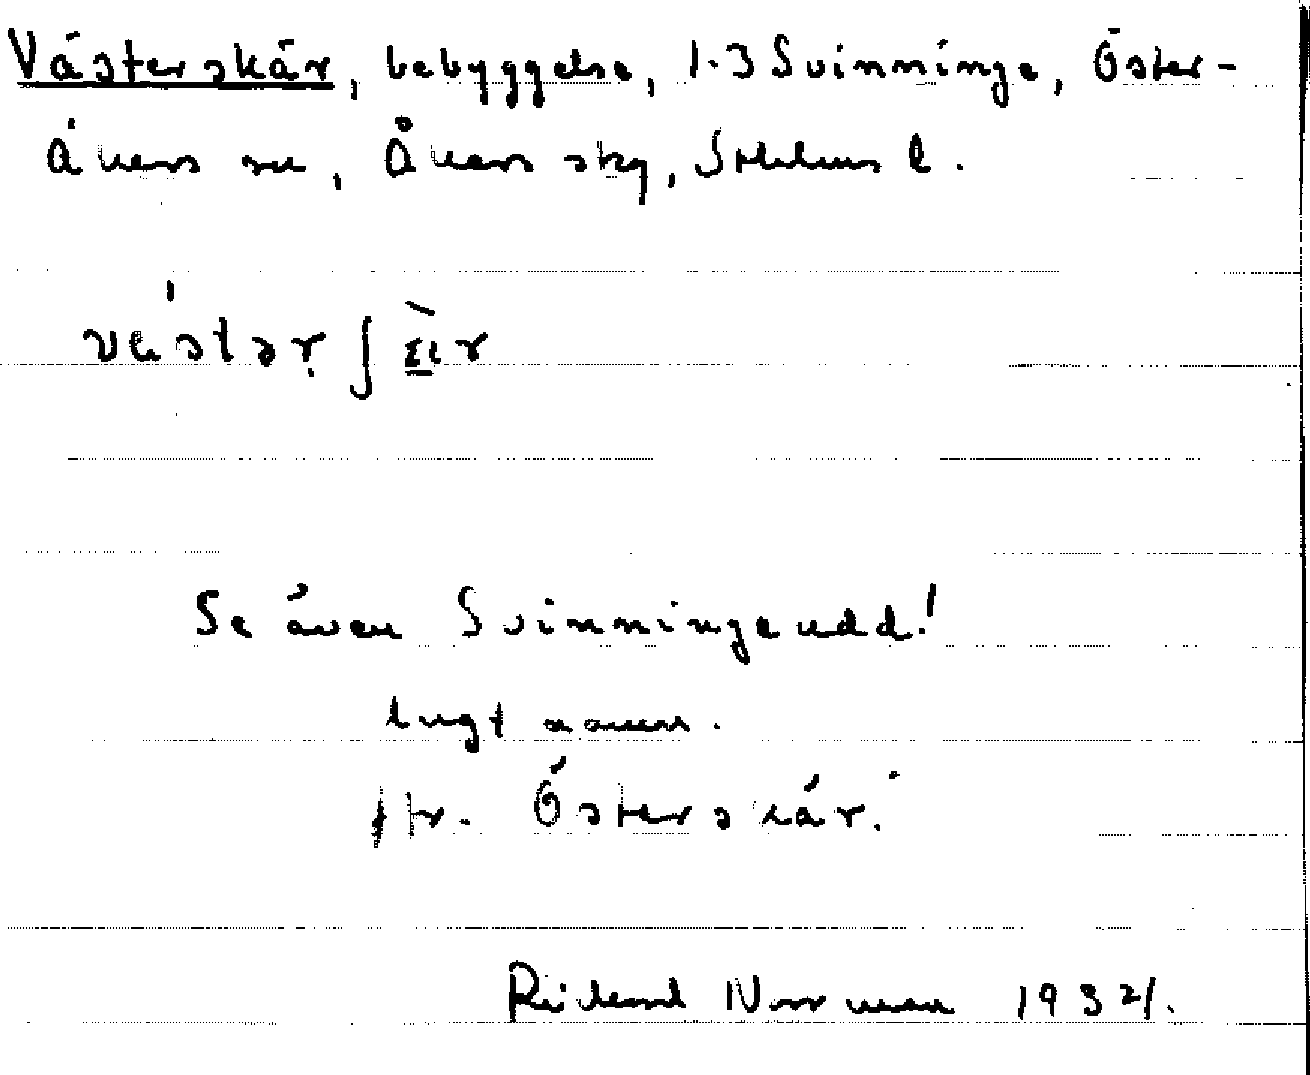 Västerskär, bebyggelse, 1-3 Svinninge, Öster-
Åkers sn, Åkers skg, Sthlms l.
västər ʃær
Se även Svinningeudd!
ungt namn.
jfr. Österskär.
Rickard Norrman 1932